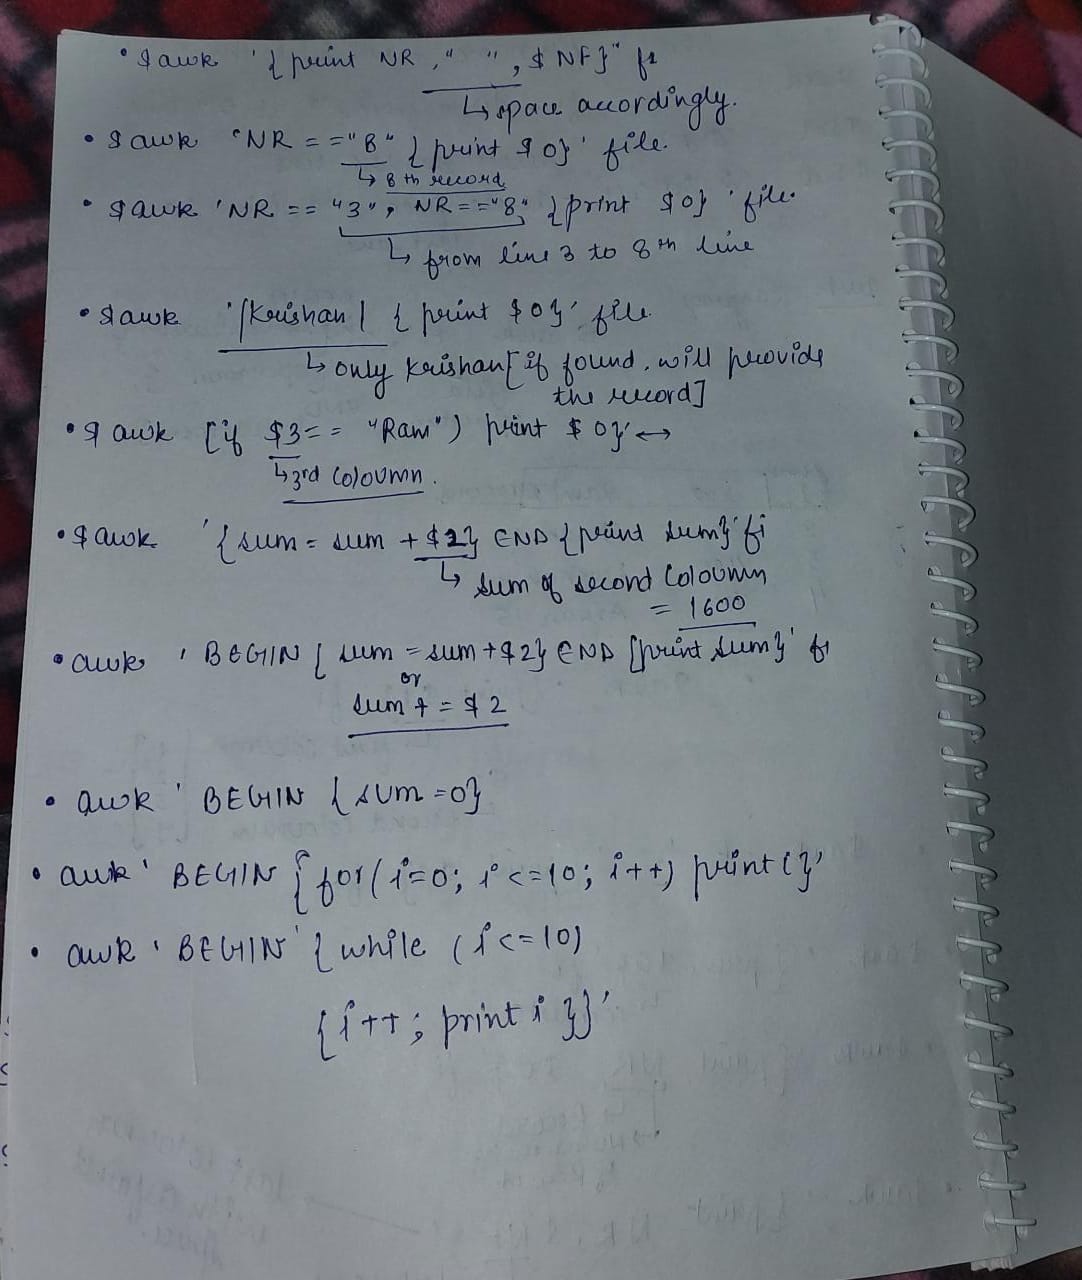 • $ awk '{ print NR ," ", $ NF}" f1
↳ space accordingly.
• $ awk 'NR == "8" { print $ 0}' file.
↳ 8 th record
• $ awk 'NR == "3", NR == "8" {print $0} ' file.
↳ from line 3 to 8th line
• $ awk '/Krishan/ { print $0}' file.
↳ only Krishan [if found, will provide
the record]
• $ awk [if $3 == "Ram") print $ 0}' ↔
↳ 3rd coloumn.
• $ awk '{sum = sum + $2} END {print sum}' fi
↳ sum of second coloumn
= 1600
• awk ' BEGIN { sum = sum + $2} END {print sum}' f1
or
sum + = $ 2
• awk ' BEGIN { sum =0}
• awk ' BEGIN { for( i=0; i <=10; i++) print i}'
• awk ' BEGIN ' { while ( i <= 10)
{ i ++ ; print i }}'